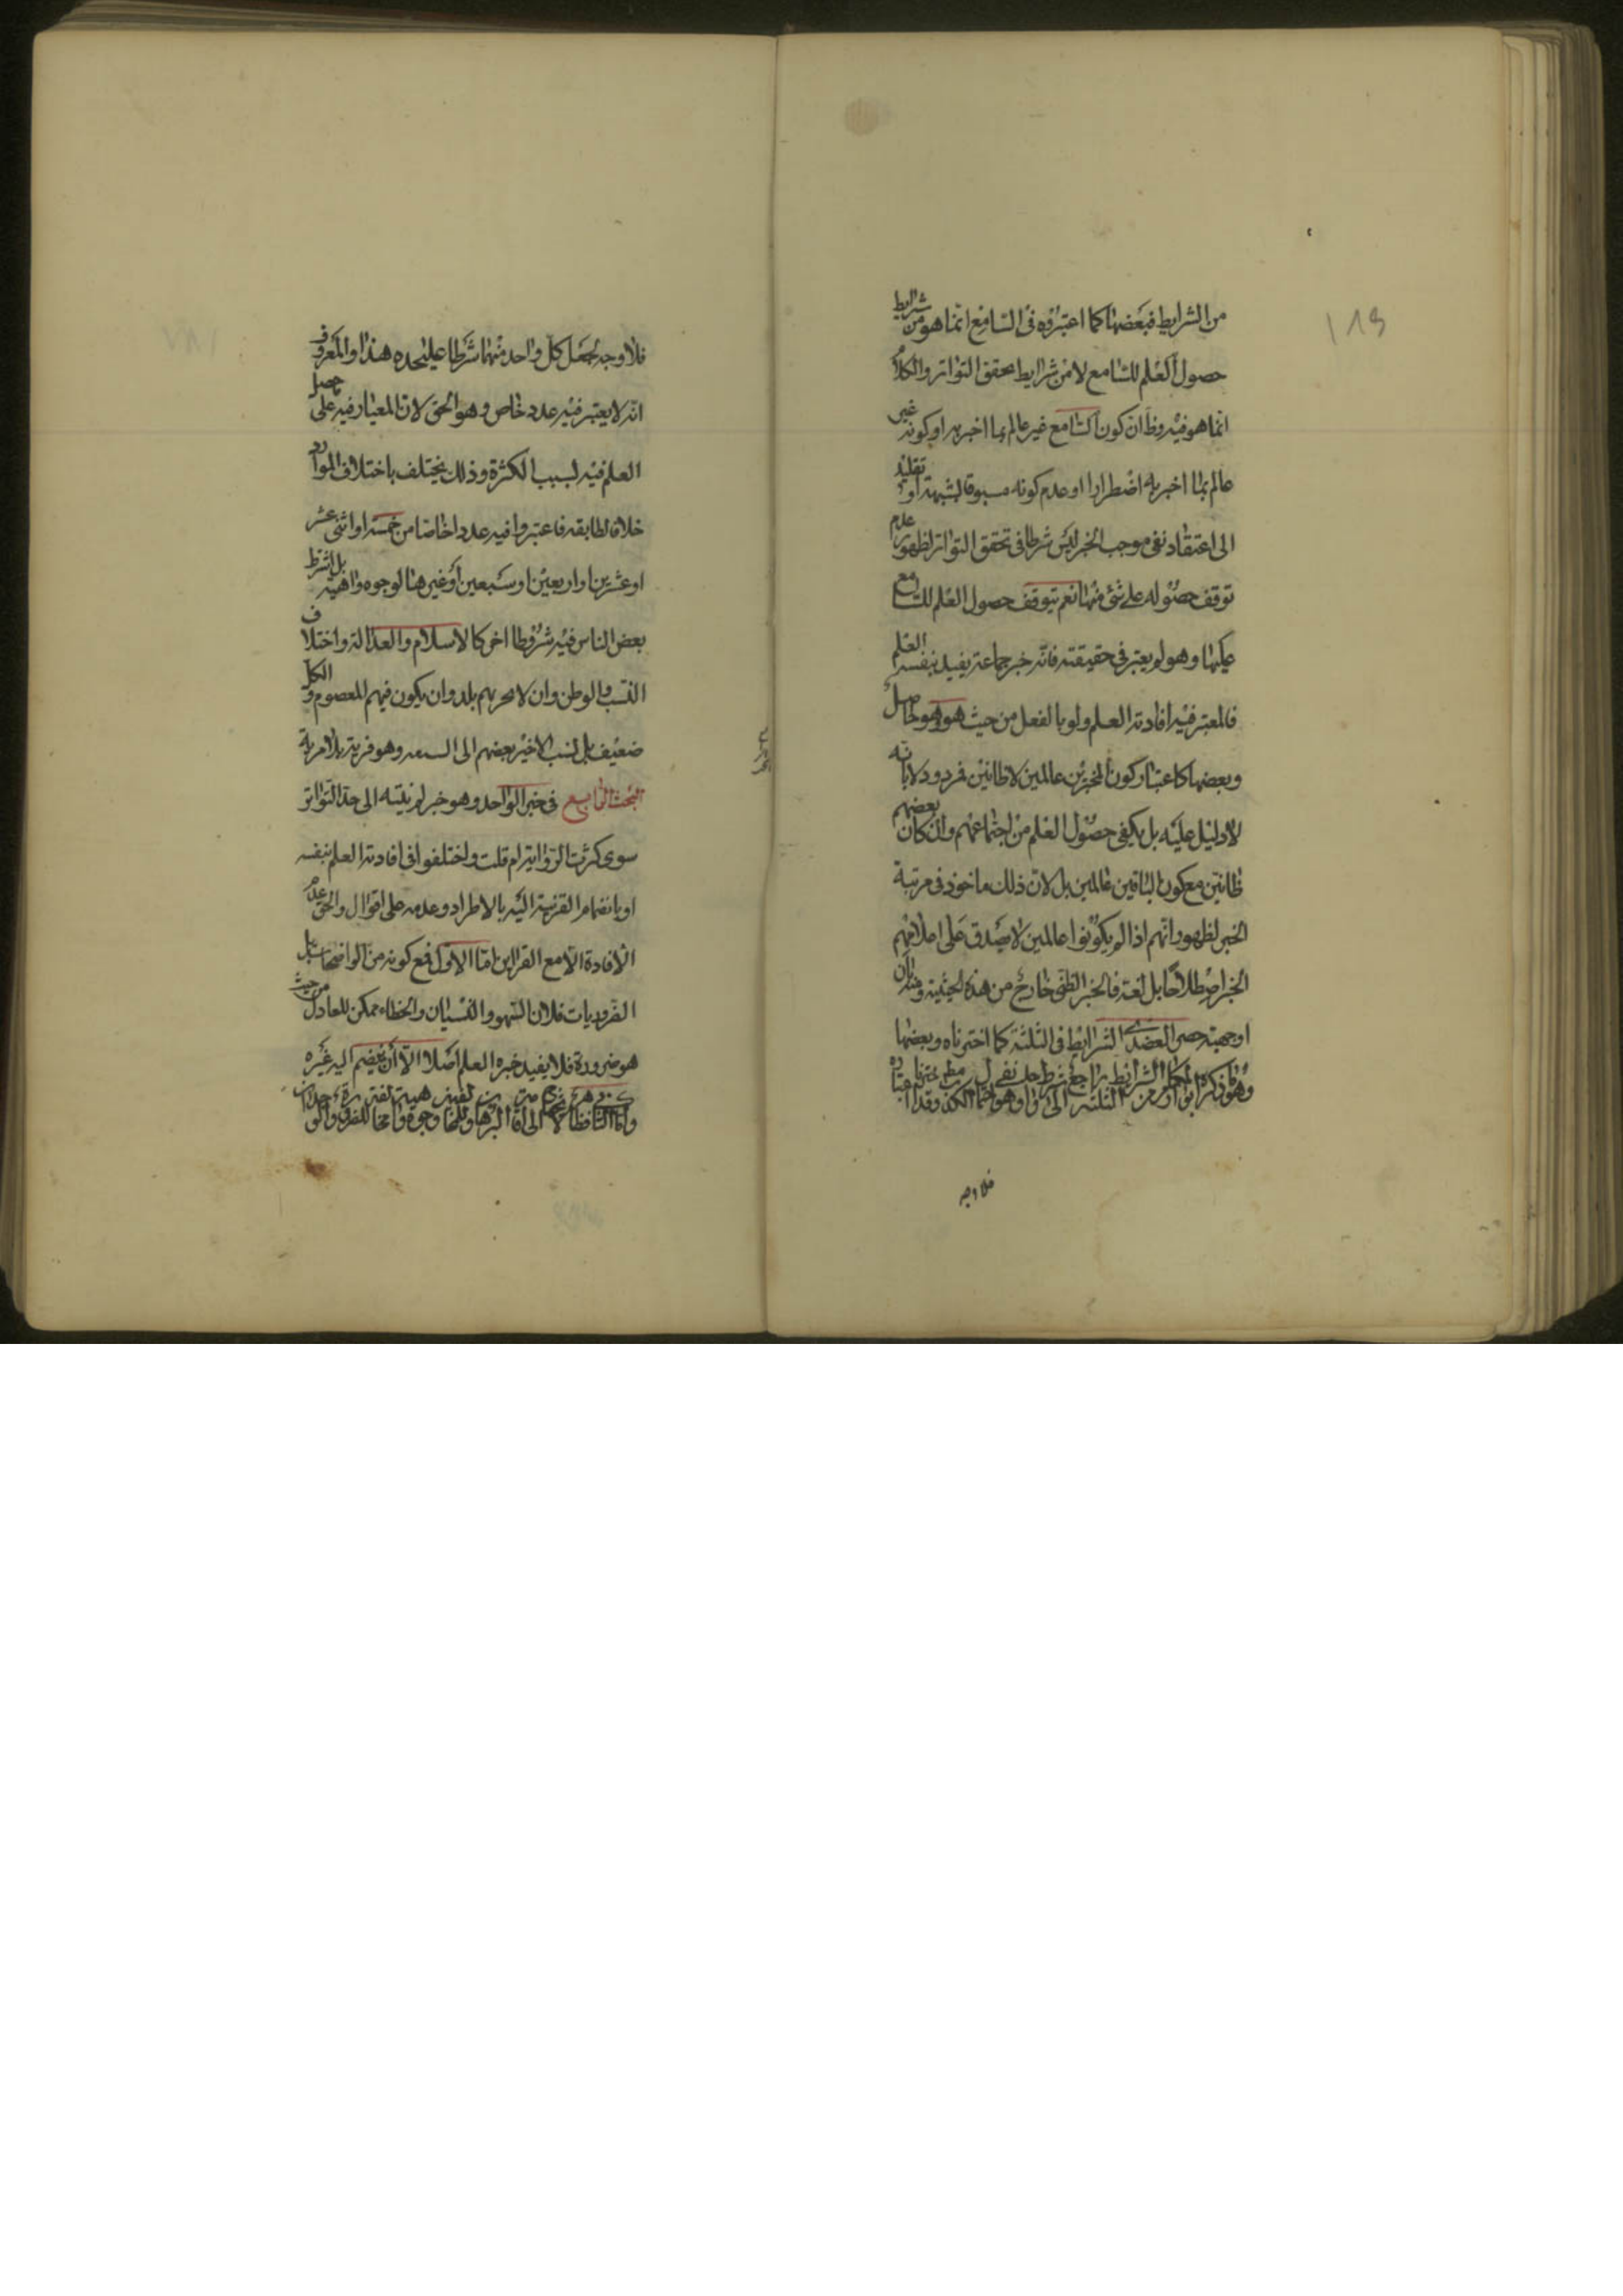 من الشرايط فبعضها كما اعتبروه فى السامع انما هو من شرايط
حصول العلم للسامع لا من شرايط تحقق التواتر والكلام
انما هو فيه وظ ان كون السامع غير عالم بما اخبر به او كونه غير
عالم بما اخبر به اضطرارا او عدم كونه مسبوقا بشبهة او تقليد
الى اعتقاد نفى موجب الخبر ليس شرطا فى تحقق التواتر لظهور عدم
توقف حصوله على شئ منها نعم يتوقف حصول العلم للسامع
عليها وهو لم يعتبر فى حقيقته فانه خبر جماعة يفيد بنفسه العلم
فالمعتبر فيه افادته العلم ولو بالفعل من حيث هو وهو حاصل
وبعضها كاعتبار كون المخبرين عالمين لا ظانين فمردود لا بانه
لا دليل عليه بل يكفى حصول العلم من اجتماعهم وان كان بعضهم
ظانين مع كون الباقين عالمين بل لان ذلك ماخوذ فى مرتبة
الخبر لظهور انهم اذا لم يكونوا عالمين لا يصدق على اعلامهم
الخبر اصطلاحا بل لغة فالخبر الظنى خارج من هذه الحيثية ومنه بان
او جهته حصر العضدى الشرايط فى الثلثة كما اخترناه وبعضها
وهو ما ذكره الشرايط راجع
فلا وجه
119
فلا وجه لجعل كل واحد منهما شرطا عليحده هذا والمعروف
انه لا يعتبر فيه عدد خاص وهو الحق لان المعيار فيه على حصل
العلم فيه لسبب الكثرة وذلك يختلف باختلاف الموارد
خلافا لطا بقه فاعتبروا فيه عددا خاصا من خمسة او اثنى عشر
او عشرين او اربعين او سبعين او غيرها لوجوه واهية بل اشرط
بعض الناس فيه شروطا اخر كالاسلام والعدالة واختلاف
النسب والوطن وان لا بلد وان يكون فيهم المعصوم والكل
ضعيف بل نسب الاخير بعضهم الى وهو فرية بلا مرية
البحث الرابع فى خبر الواحد وهو خبر لم ينته الى حد التواتر
سوى كثرت الرواية ام قلت واختلفوا فى افادته العلم بنفسه
او بانضمام القرينة اليه بالاطراد وعدمه على اقوال والحق عدم
الافادة الا مع القراين اما الاول فمع كونه من الواضحات بل
الضروريات فلان السهو والنسيان والخطاء ممكن للعادل من حيث
هو ضرورة فلا يفيد خبره العلم اصلا الا ان ينضم اليه غيره